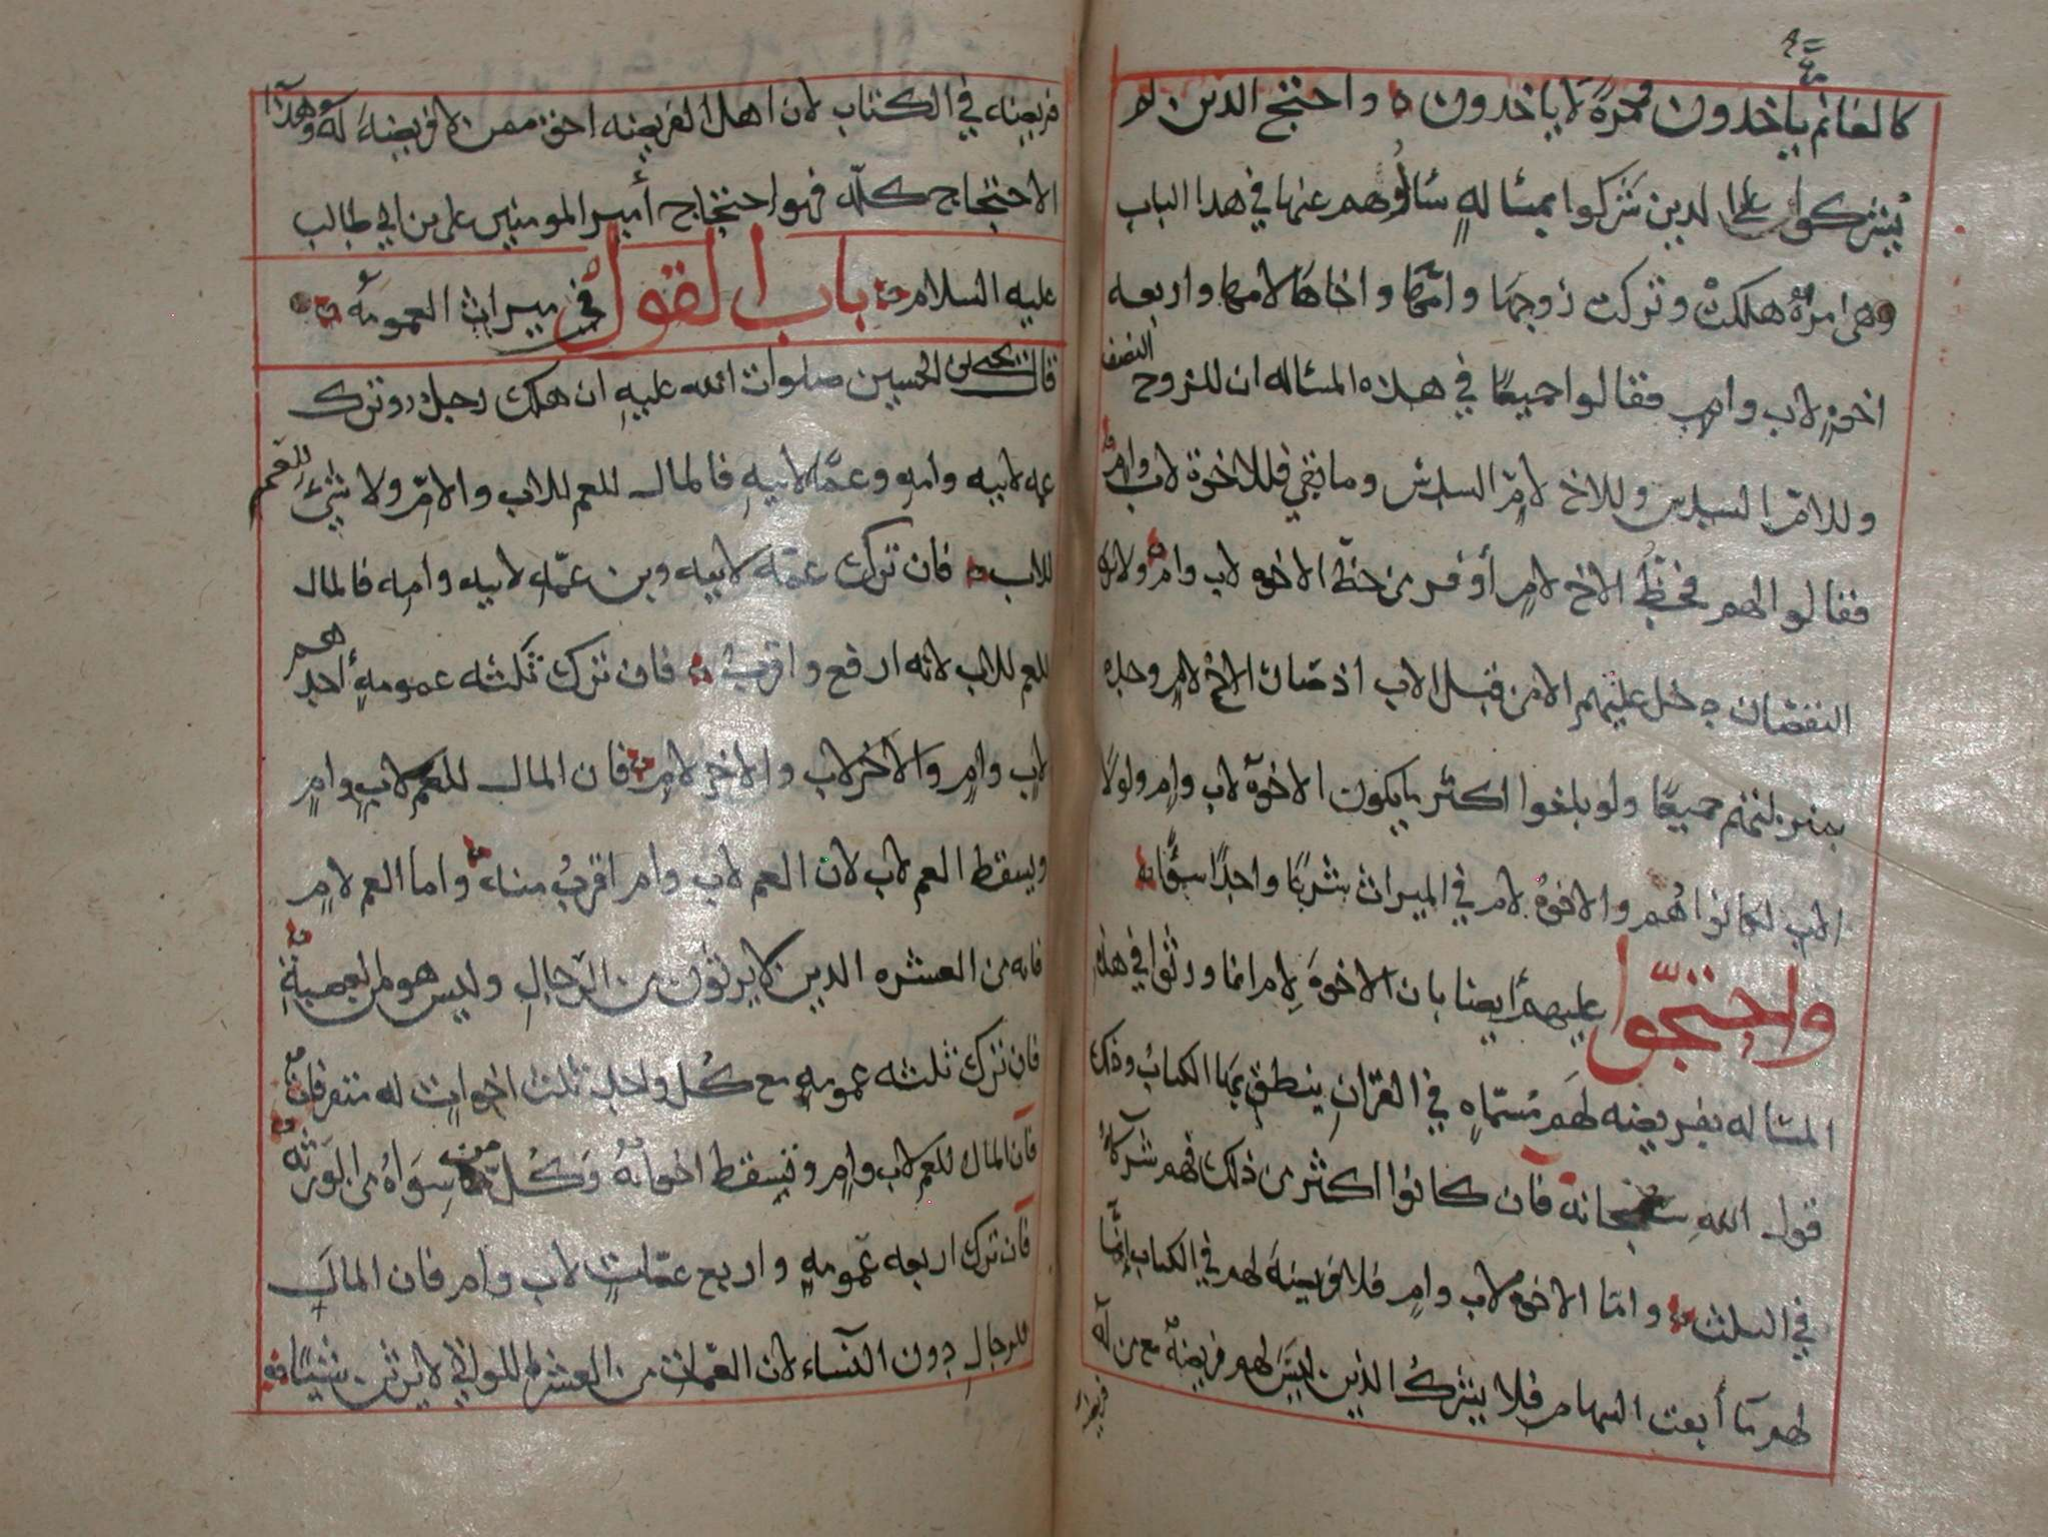 كالغانم ياخذون ومرة لا ياخذون ه واحتج الذين لم
يشركوا على الذين شركوا بمسالةٍ سالوهم عنها في هذا الباب
وهي امرأة هلكت وتركت زوجها وامّها واخاها لامها واربعه
اخوةٍ لاب وامٍ فقالوا جميعًا في هذه المساله ان للزوج النصف
وللامّ السدس وللاخ لامٍّ السدس وما بقي فللاخوة لاب وامٍ
فقالوا لهم فحظّ الاخ لامٍ أوفر من حظّ الاخوه لاب وامٍ ولانرى
النقصان دخل عليهم الا من قبل الاب اذ صار الاخ لامٍ وحده
بمنزلتهم جميعًا ولو بلغوا اكثر ما يكون الاخوة لاب وامٍ ولولا
الاب لكانوا هُم والاخوة لام في الميراث شربًا واحدًا سوّا
واحتجّوا عليهم أيضا بان الاخوةَ لامٍ انما ورثوا في هذه
المساله بفريضه لهم مسمّاهٍ في القران ينطق بها الكتابُ وذلك
قول اللهِ سبحانه فان كانوا اكثر من ذلك فهم شركآءُ
في الثلث واما الاخوة لاب وامٍ فلا فريضةَ لهم في الكتاب إنمّا
لهم مآ أبقت السهام فلا يشركُ الذين ليسَ لهم فريضةٌ مع من له
فريضة
فريضه في الكتاب لان اهل الفريضه احق ممن لا فريضةَ له وهذا
الاحتجاج كلّه فهو احتجاج أمير المومنين علي بن ابي طالب
عليه السلام باب القول في ميراث العمومه
قال يحيى بن الحسين صلوات الله عليهِ ان هلك رجل وترك
عمه لابيه وامهِ وعمّه لابيهِ فالمال للعم للاب والامّ ولا شيَ للعم
للاب فان ترك عمّه لابيه وبن عمّهِ لابيه وامِه فالمال
للعم للاب لانه ارفع واقربُ فان ترك ثلثه عمومهٍ أحدهم
لابٍ وامٍ والاخر لاب والاخر لامٍ فان المال للعم لابٍ وامٍ
ويسقط العم لاب لان العم لابٍ وام اقربُ منه واما العم لامٍ
فانه من العشره الذين لا يرثون من الرّجالِ وليس هو من العصبةِ
فان ترك ثلثه عمومهٍ مع كُل واحدٍ ثلث اخواتٍ له متفرقات
فان المال للعم لاب وامٍ وتسقط اخواتُهُ وكُلّ من سوَاهُ من الورثه
فان ترك اربعه عمومهٍ واربع عمّاتٍ لاب وام فان المالَ
للرجالِ دون النسآء لان العمّات من العشر اللواتي لا يرثن شيئًا